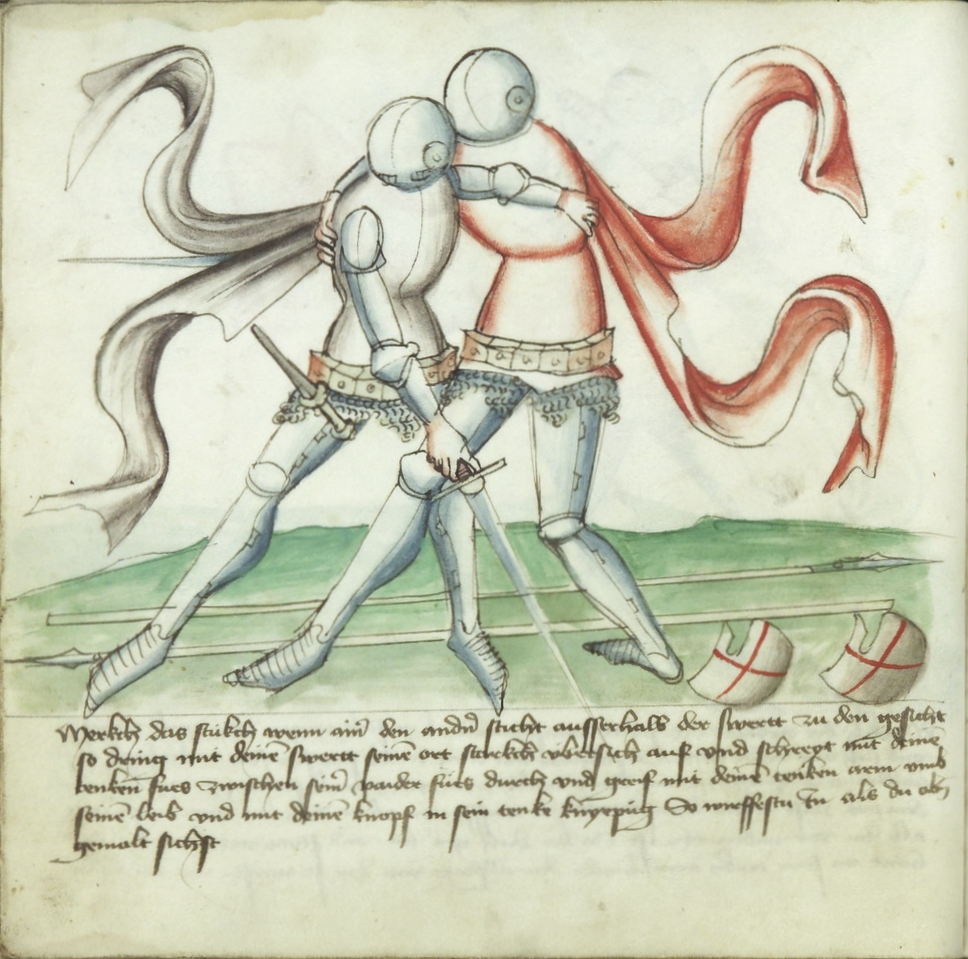 Merckch das stuckch wenn ain̄ den andn̄ sticht ausserhalb der swertt zu den gesicht
so dring mit deinē swertt seinē ort starckch vbersich auf vnd schreyt mit deinē
tenken fues zwischen sein̄ paider fües durch vnd greif mit deinē tenken arm vmb
seinē leib vnd mit deinē knopf in sein tenke knyepüg So wurffestu In als du obn̄
gemalt sichst